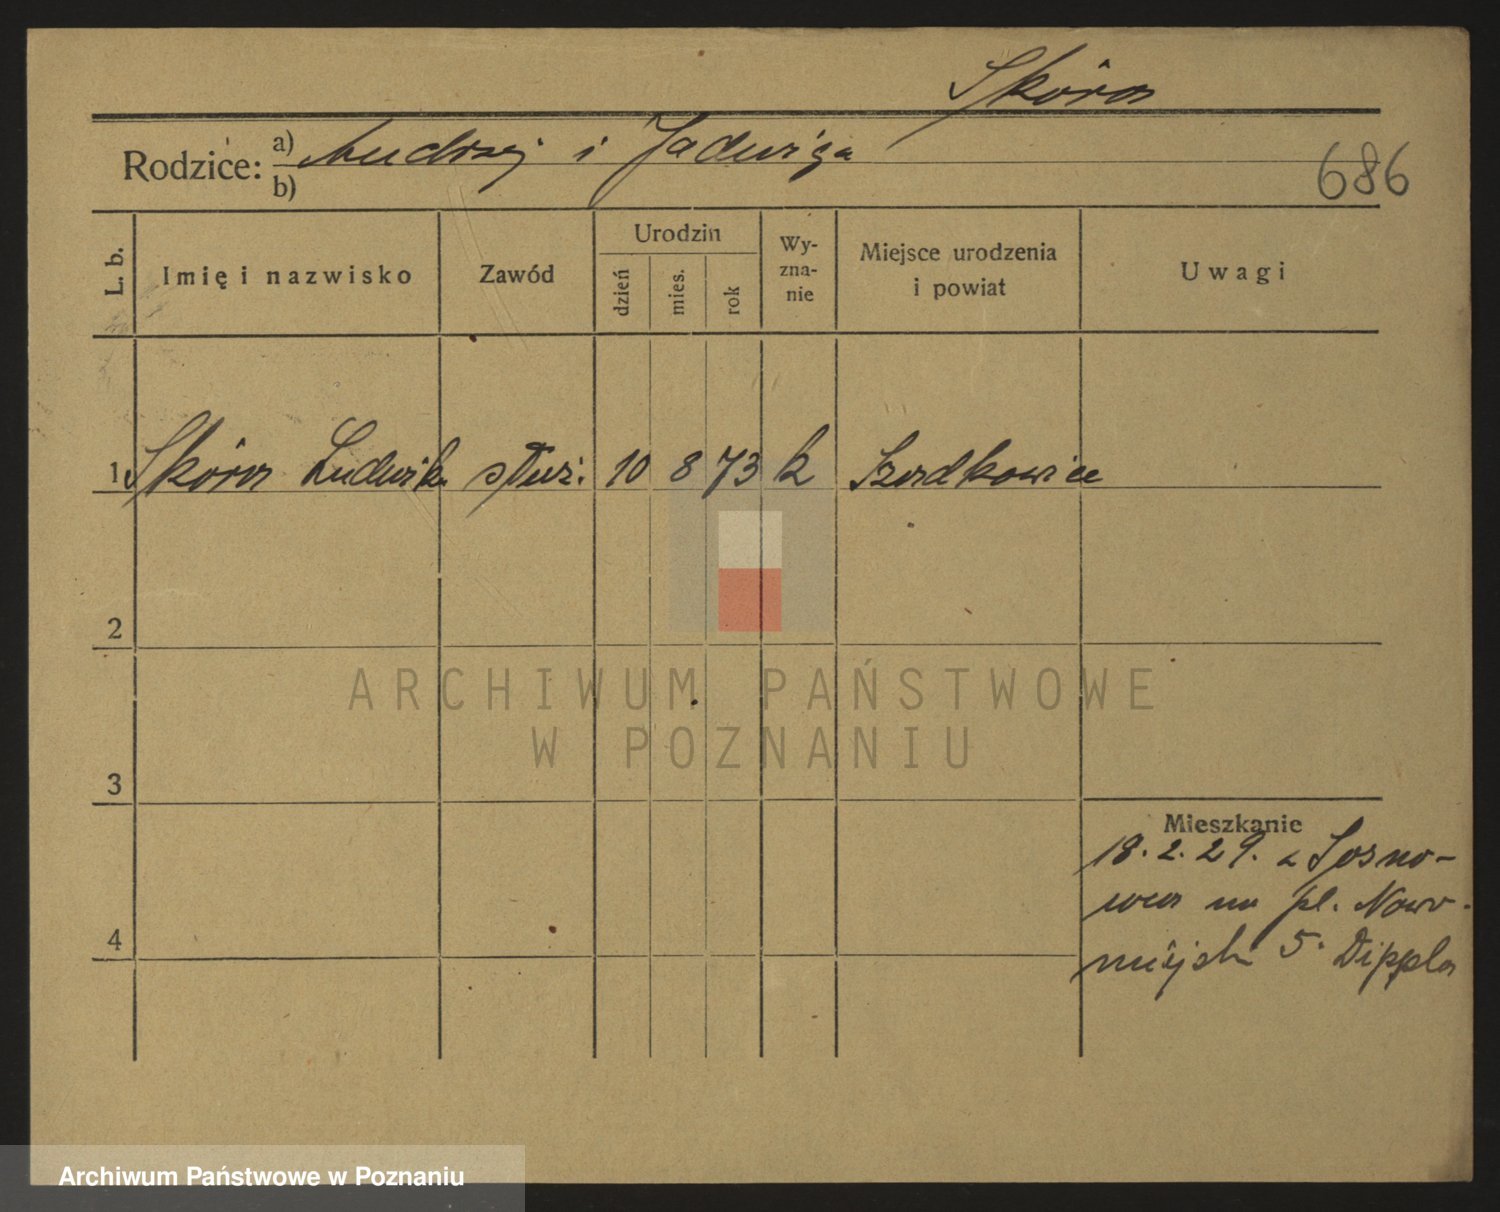 Skóra
Rodzice: a) Andrzej i Jadwiga
b)
686
L. b. Imię i nazwisko Zawód Urodzin dzień mies. rok Wy-zna-nie Miejsce urodzenia i powiat Uwagi
1 Skóra Ludwik służ. 10 8 73 k Szadkowice
2
3
4
Mieszkanie
18.2.29. z Sosno-
wca na pl. Nowo-
miejski 5. Dippla
ARCHIWUM PAŃSTWOWE
W POZNANIU
Archiwum Państwowe w Poznaniu